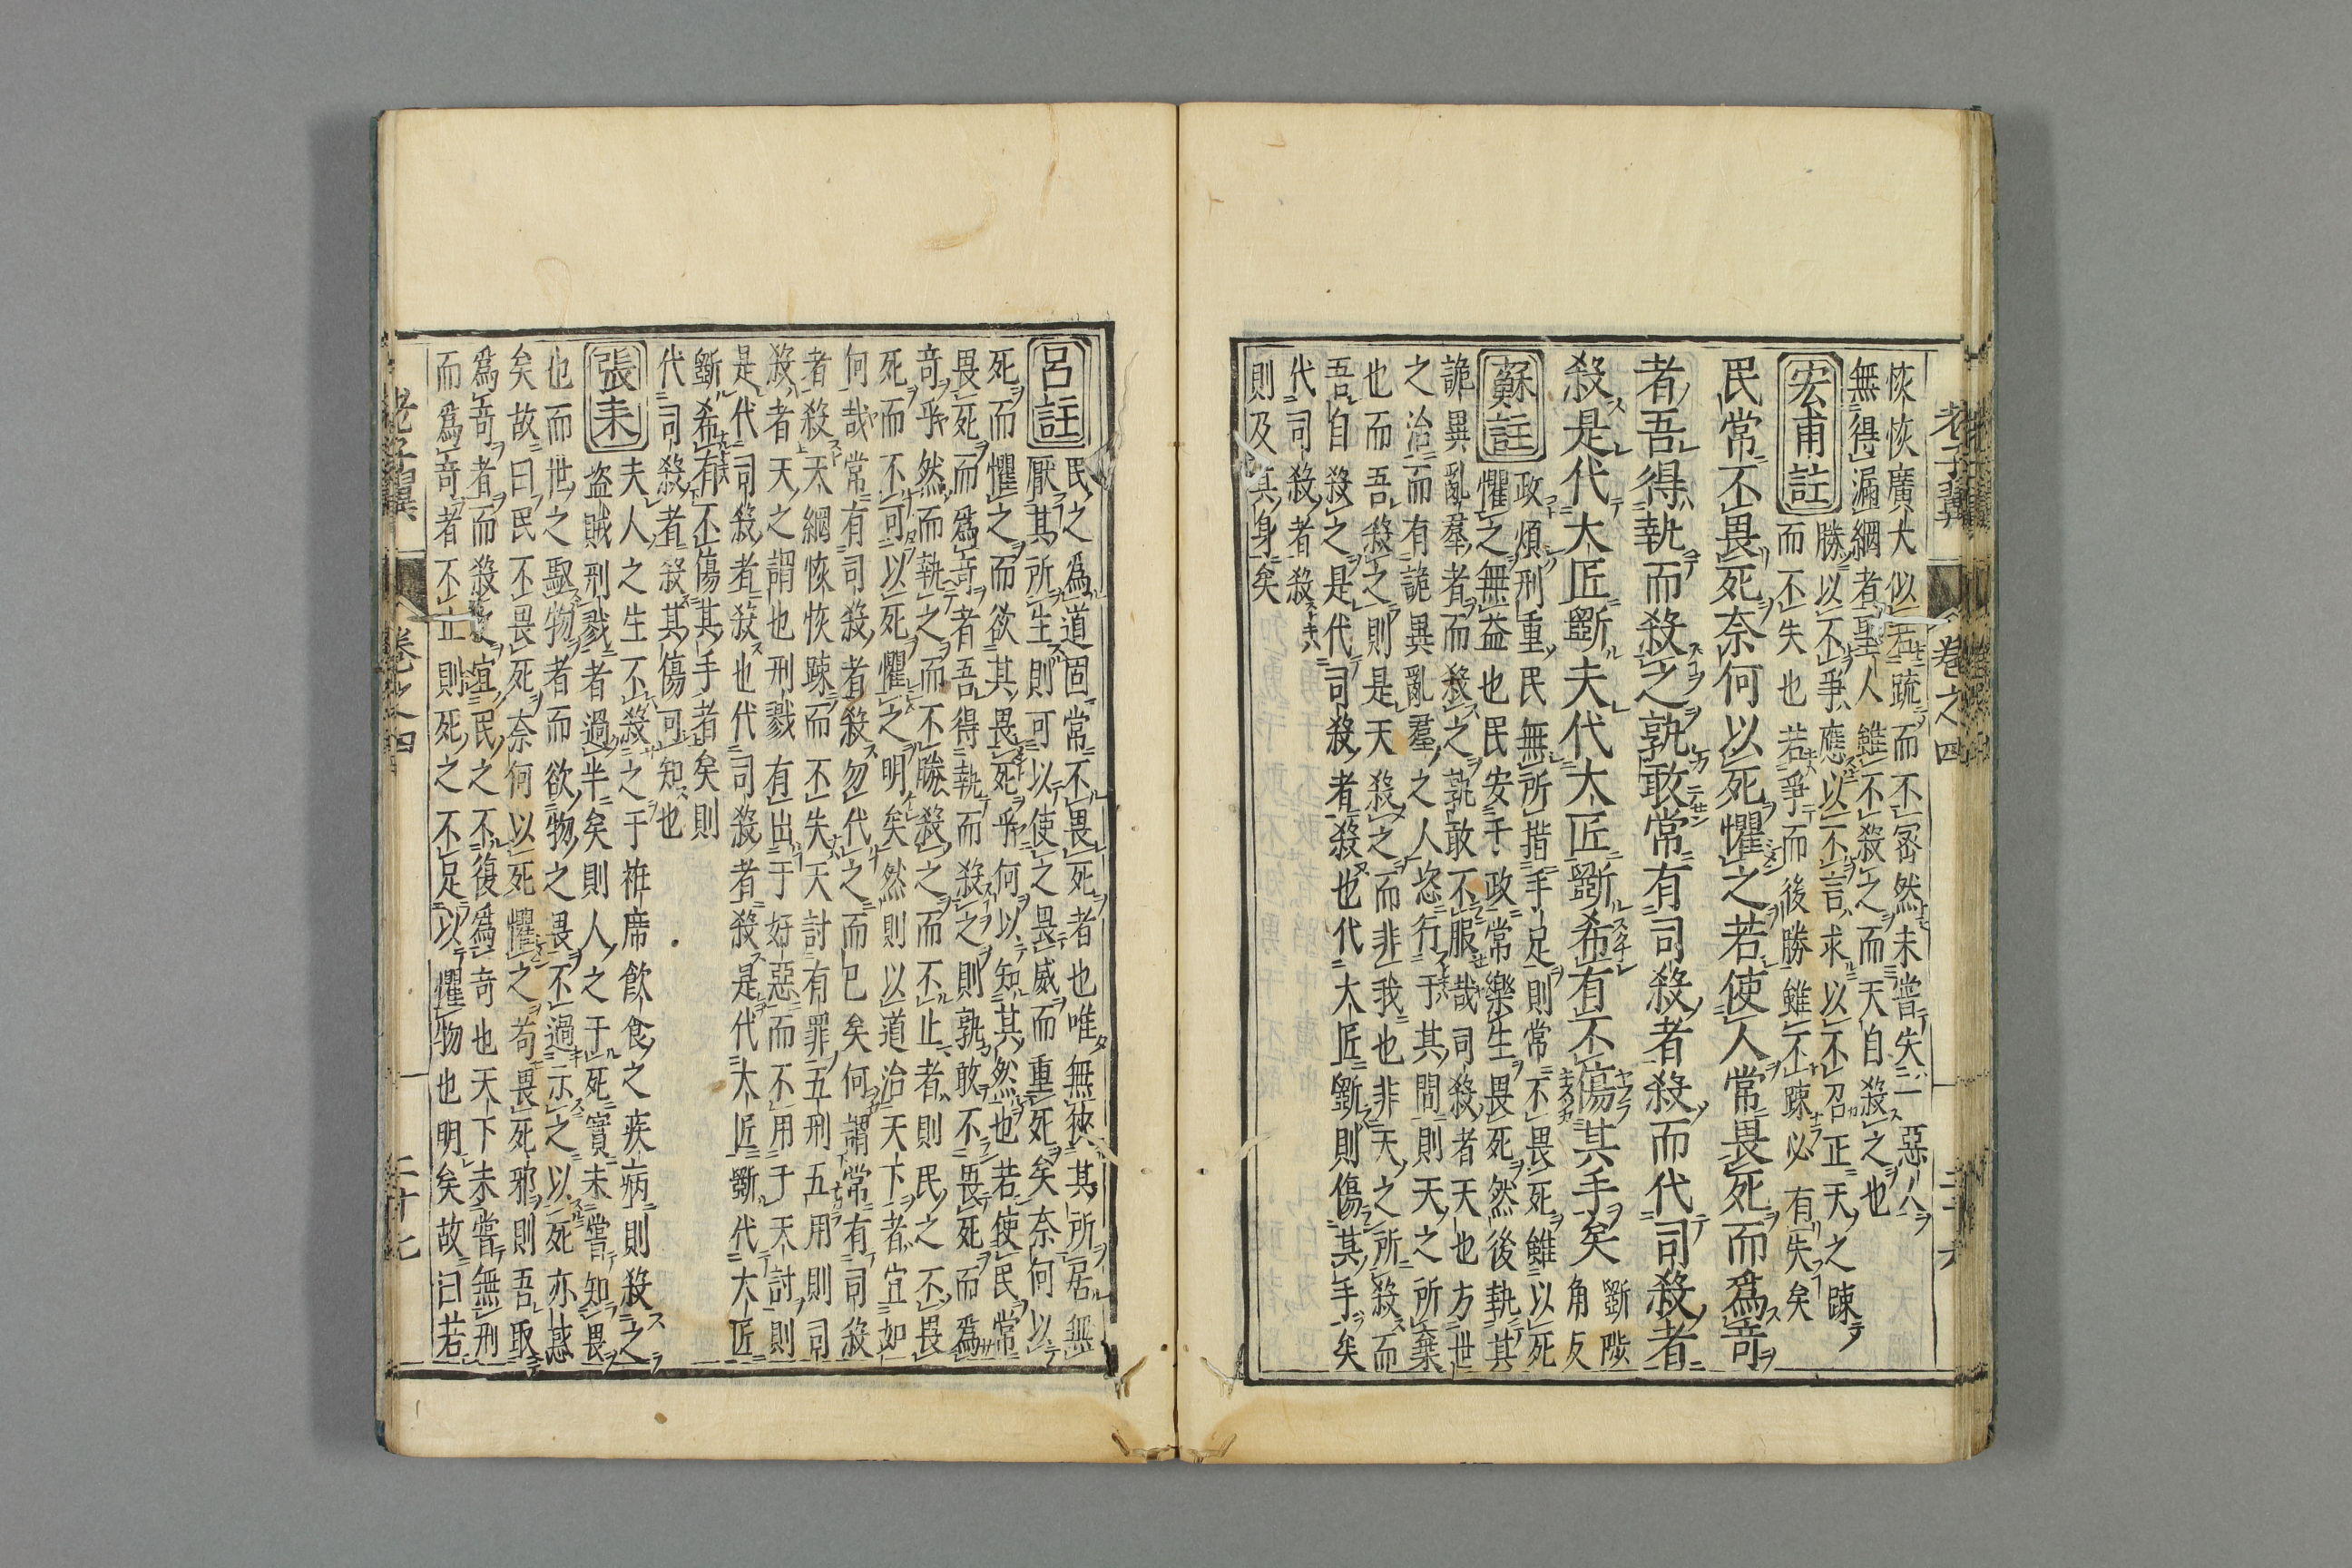 老子翼 卷之四 二十六
恢恢廣大似若疏而不密然未嘗失一惡人
無得漏網者聖人雖不殺之而天自殺之也
宏甫註
勝以不爭應以不言求以不召正天之踈
而不失也若爭而後勝雖不踈必有失矣
民常不畏死奈何以死懼之若使人常畏死而爲奇
者吾得執而殺之孰敢常有司殺者殺而代司殺者
殺是代大匠斲夫代大匠斲希有不傷其手矣
斲陟
角反
蘇註
政煩刑重民無所措手足則常不畏死雖以死
懼之無益也民安于政常樂生畏死然後執其
詭異亂羣者而殺之孰敢不服哉司殺者天也方世
之治而有詭異亂羣之人恣行于其間則天之所棄
也而吾殺之則是天殺之而非我也非天之所殺而
吾自殺之是代司殺者殺也代大匠斲則傷其手矣
代司殺者殺
則及其身矣
呂註
民之爲道固常不畏死者也唯無狹其所居無
厭其所生則可以使之畏威而重死矣奈何以
死而懼之而欲其畏死乎何以知其然也若使民常
畏死而爲奇者吾得執而殺之則孰敢不畏死而爲
奇乎然而執之而不勝殺之而不止者則民之不畏
死而不可以死懼之明矣然則以道治天下者宜如
何哉常有司殺者殺勿代之而已矣何謂常有司殺
者殺天網恢恢踈而不失天討有罪五刑五用則司
殺者天之謂也刑戮有出于好惡而不用于天討則
是代司殺者殺也代司殺者殺是代大匠斲代大匠
斲希有不傷其手者矣則
代司殺者殺其傷可知也
張耒
夫人之生不殺之于袵席飲食之疾病則殺之
盗賊刑戮者過半矣則人之于死實未嘗知畏
也而世之馭物者而欲物之畏不過示之以死亦惑
矣故曰民不畏死奈何以死懼之苟畏死邪則吾取
爲奇者而殺之宜民之不復爲奇也天下未嘗無刑
而爲奇者不止則死之不足以懼物也明矣故曰若
老子翼 卷之四 二十七